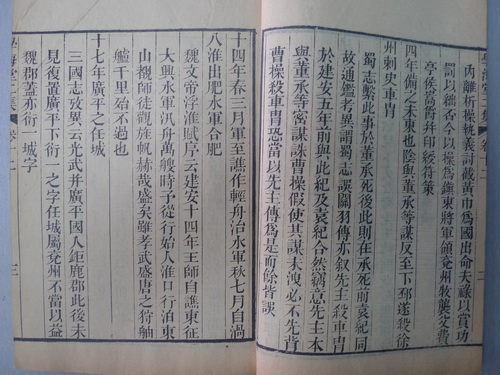 內離析操執義討截黃巾爲國出命夫祿以賞功
罰以絀否今以操爲鎮東將軍領兗州牧襲父費
亭侯嵩爵并印綬符策
四年備之未東也陰與董承等謀反至下邳遂殺徐
州刺史車冑
蜀志繫此事於董承死後此則在承死前袁紀同
故通鑑考異謂蜀志誤關羽傳亦叙先主殺車冑
於建安五年前與此紀及袁紀合然竊意先主本
與董承等密謀誅曹操假使其謀未洩必不先背
曹操殺車冑恐當以先主傳爲是而餘皆誤
十四年春三月軍至譙作輕舟治水軍秋七月自渦
入淮出肥水軍合肥
魏文帝浮淮賦序云建安十四年王師自譙東征
大興水軍汎舟萬艘時予從行始入淮口行泊東
山覩師徒觀旌帆赫哉盛矣雖孝武盛唐之狩舳
艫千里殆不過也
十七年廣平之任城
三國志攷異云光武并廣平國入鉅鹿郡此後未
見復置廣平下衍一之字任城屬兗州不當以益
魏郡蓋亦衍一城字
三